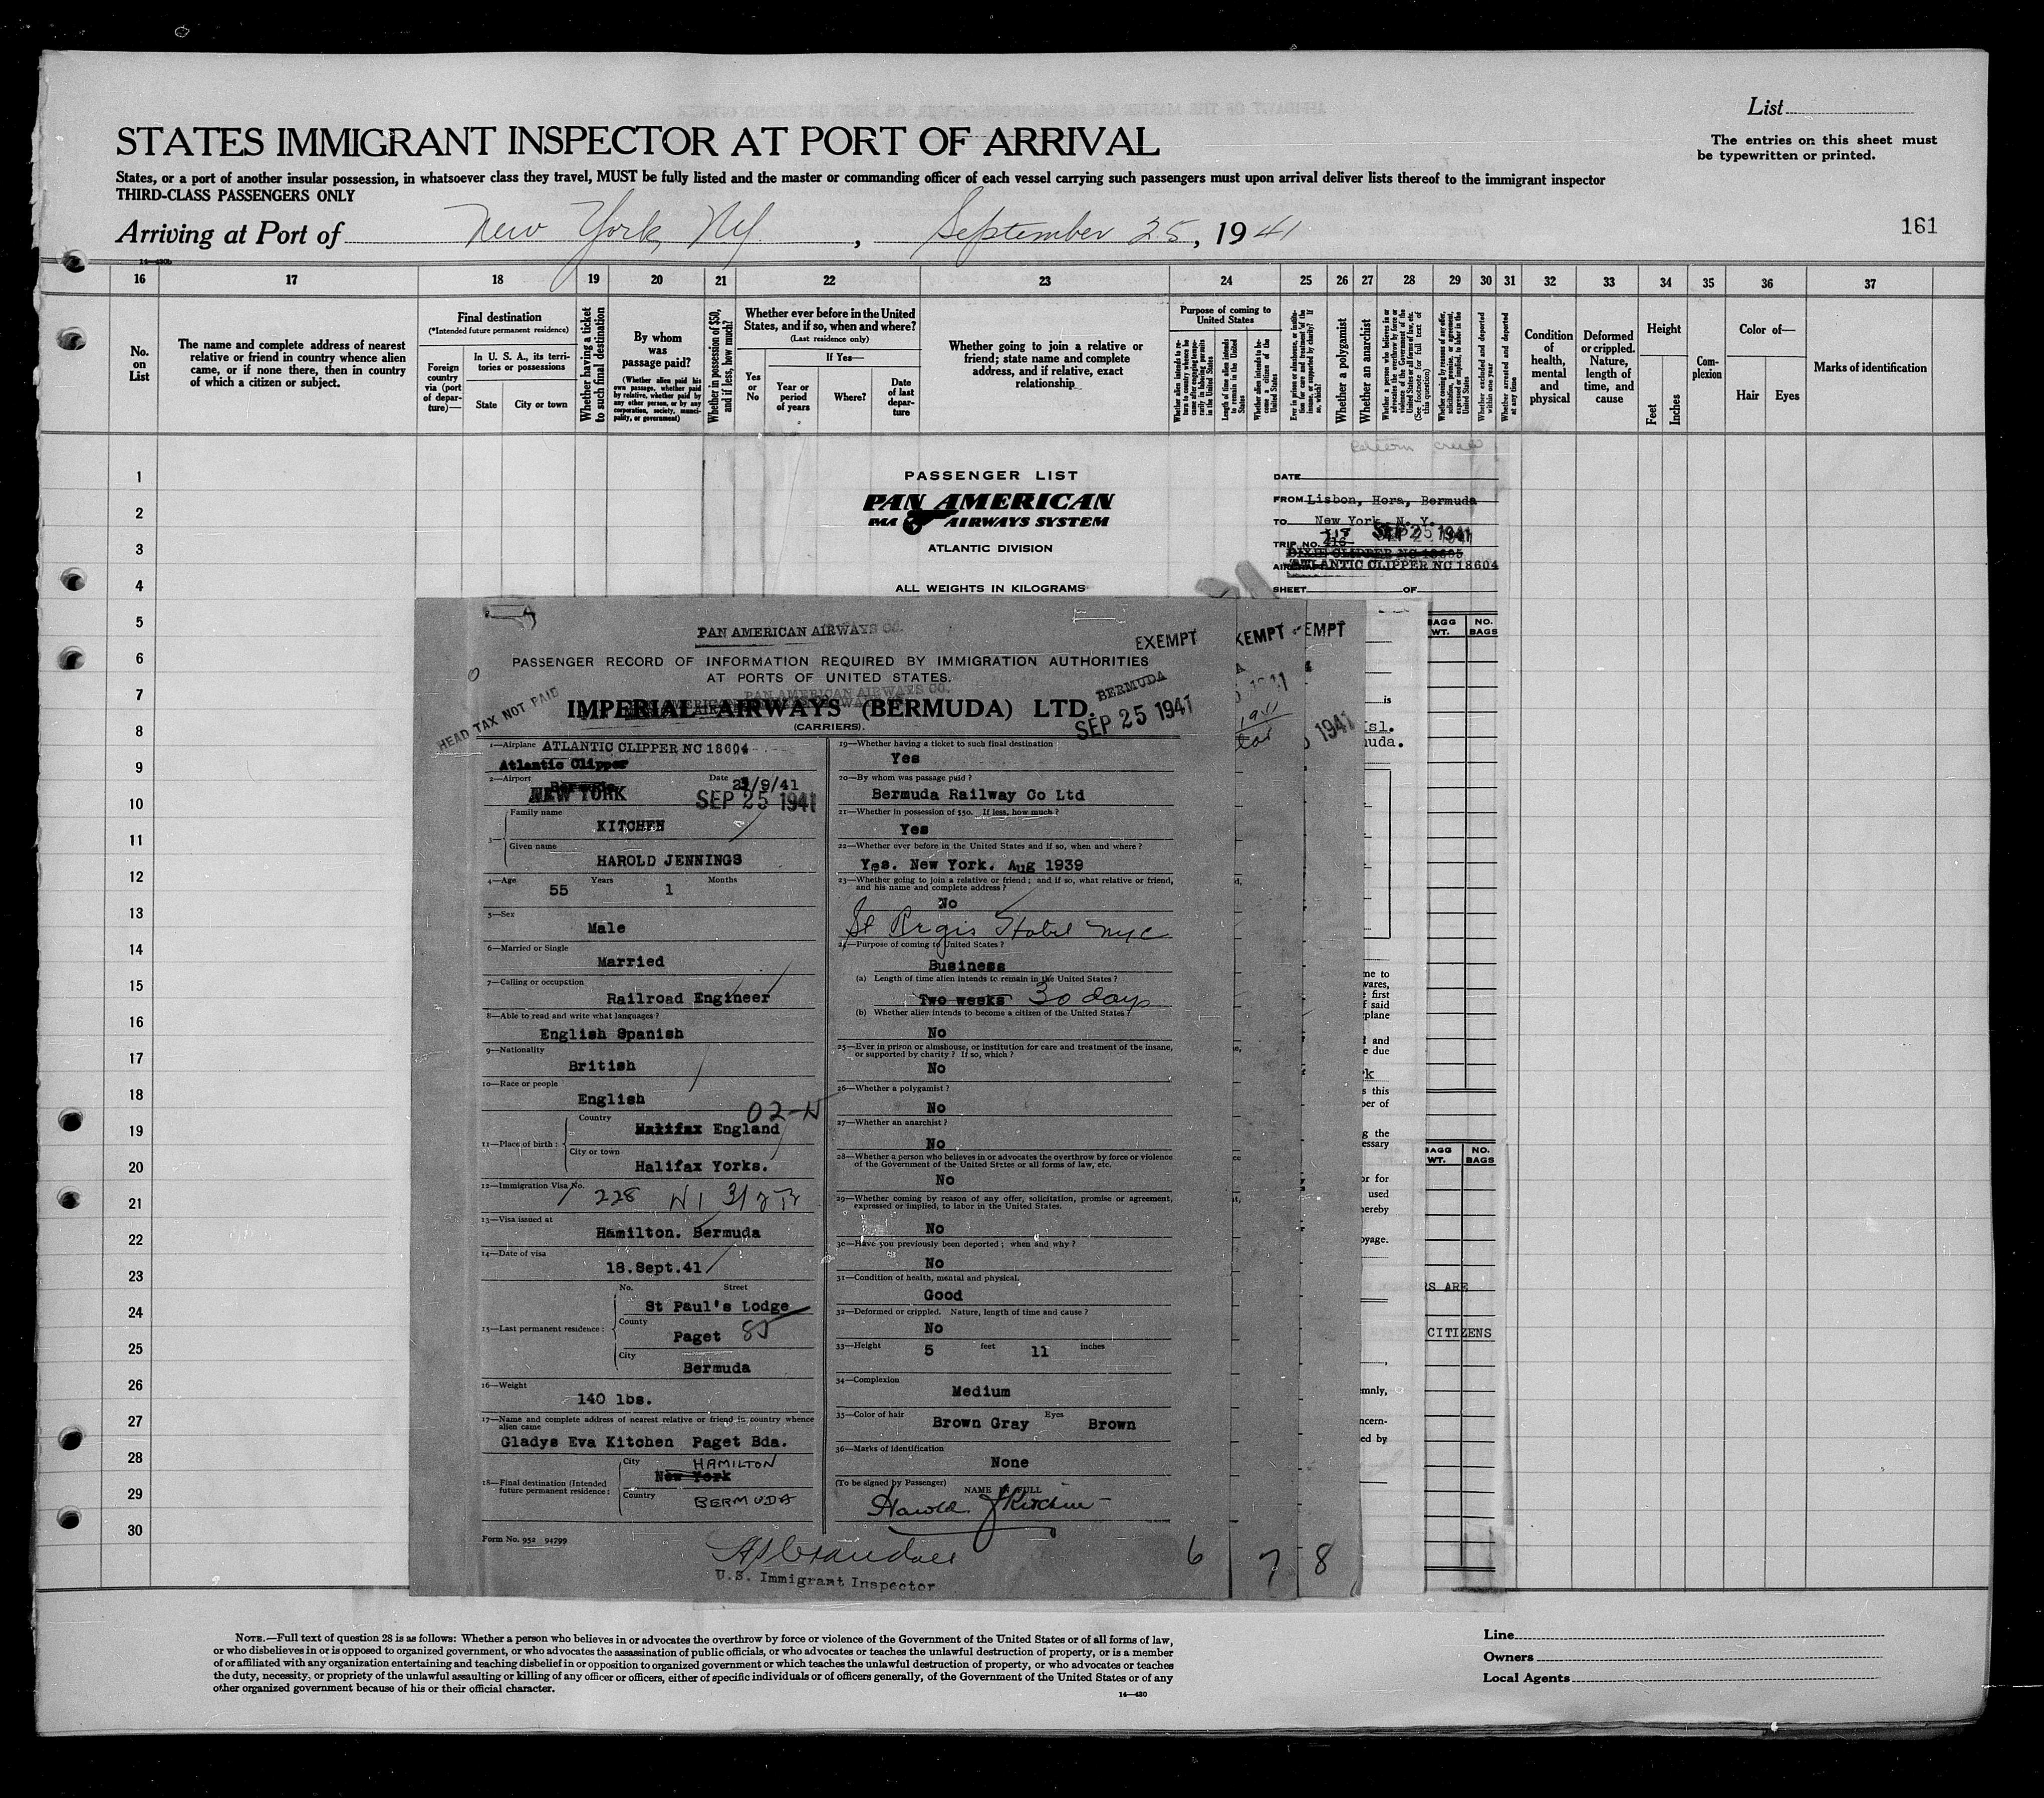 List
STATES IMMIGRANT INSPECTOR AT PORT OF ARRIVAL
The entries on this sheet must
be typewritten or printed.
States, or a port of another insular possession, in whatsoever class they travel, MUST be fully listed and the master or commanding officer of each vessel carrying such passengers must upon arrival deliver lists thereof to the immigrant inspector
THIRD-CLASS PASSENGERS ONLY
Arriving at Port of New York, NY , September 25, 1941
161
14—430b
16 17 18 19 20 21 22 23 24 25 26 27 28 29 30 31 32 33 34 35 36 37
No. on List
The name and complete address of nearest
relative or friend in country whence alien
came, or if none there, then in country
of which a citizen or subject.
Final destination
(*Intended future permanent residence)
Foreign country via (port of departure)—
In U. S. A., its territories or possessions
State
City or town
Whether having a ticket to such final destination
By whom was passage paid?
(Whether alien paid his own passage, whether paid by relative, whether paid by any other person, or by any corporation, society, municipality, or government)
Whether in possession of $50, and if less, how much?
Whether ever before in the United
States, and if so, when and where?
(Last residence only)
Yes or No
If Yes—
Year or period of years
Where?
Date of last departure
Whether going to join a relative or
friend; state name and complete
address, and if relative, exact
relationship
Purpose of coming to
United States
Length of time alien intends to remain in the United States
Whether alien intends to become a citizen of the United States
Whether a polygamist
Whether an anarchist
Whether excluded and deported within one year
Whether arrested and deported at any time
Condition of health, mental and physical
Deformed or crippled. Nature, length of time, and cause
Height
Feet
Inches
Complexion
Color of—
Hair
Eyes
Marks of identification
1
2
3
4
5
6
7
8
9
10
11
12
13
14
15
16
17
18
19
20
21
22
23
24
25
26
27
28
29
30
PASSENGER LIST
PAN AMERICAN
PAA AIRWAYS SYSTEM
ATLANTIC DIVISION
ALL WEIGHTS IN KILOGRAMS
DATE
FROM Lisbon, Hora, Bermuda
TO New York, N. Y.
TRIP NO. SEP 25 1941
DIXIE CLIPPER NC 18605
ATLANTIC CLIPPER NC 18604
SHEET OF
BAGG WT. NO. BAGS
PAN AMERICAN AIRWAYS CO.
EXEMPT
PASSENGER RECORD OF INFORMATION REQUIRED BY IMMIGRATION AUTHORITIES
AT PORTS OF UNITED STATES.
HEAD TAX NOT PAID
PAN AMERICAN AIRWAYS CO.
IMPERIAL AIRWAYS (BERMUDA) LTD.
(CARRIERS).
BERMUDA
SEP 25 1941
1—Airplane ATLANTIC CLIPPER NC 18604
Atlantic Clipper
2—Airport Bermuda Date /9/41
NEW YORK SEP 25 1941
3— Family name KITCHEN
Given name HAROLD JENNINGS
4—Age 55 Years 1 Months
5—Sex Male
6—Married or Single Married
7—Calling or occupation Railroad Engineer
8—Able to read and write what languages? English Spanish
9—Nationality British
10—Race or people English
02-N
11—Place of birth: Country Halifax England
City or town Halifax Yorks.
12—Immigration Visa No. 228
13—Visa issued at Hamilton. Bermuda
14—Date of visa 18.Sept.41
15—Last permanent residence: No. Street St Paul's Lodge
County Paget 85
City Bermuda
16—Weight 140 lbs.
17—Name and complete address of nearest relative or friend in country whence
alien came
Gladys Eva Kitchen Paget Bda.
18—Final destination (Intended future permanent residence: City HAMILTON
New York
Country BERMUDA
Form No. 952 94799
19—Whether having a ticket to such final destination
Yes
20—By whom was passage paid?
Bermuda Railway Co Ltd
21—Whether in possession of $50. If less, how much?
Yes
22—Whether ever before in the United States and if so, when and where?
Yes. New York. Aug 1939
23—Whether going to join a relative or friend; and if so, what relative or friend,
and his name and complete address?
No
St Regis Hotel NYC
24—Purpose of coming to United States?
Business
(a) Length of time alien intends to remain in the United States?
Two weeks 30 days
(b) Whether alien intends to become a citizen of the United States?
No
25—Ever in prison or almshouse, or institution for care and treatment of the insane,
or supported by charity? If so, which?
No
26—Whether a polygamist?
No
27—Whether an anarchist?
No
28—Whether a person who believes in or advocates the overthrow by force or violence
of the Government of the United States or all forms of law, etc.
No
29—Whether coming by reason of any offer, solicitation, promise or agreement,
expressed or implied, to labor in the United States.
No
30—Have you previously been deported; when and why?
No
31—Condition of health, mental and physical.
Good
32—Deformed or crippled. Nature, length of time and cause?
No
33—Height 5 feet 11 inches
34—Complexion
Medium
35—Color of hair Brown Gray Eyes Brown
36—Marks of identification
None
(To be signed by Passenger) NAME IN FULL
Harold J Kitchen
U.S. Immigrant Inspector
6 7 8
CITIZENS
NOTE.—Full text of question 28 is as follows: Whether a person who believes in or advocates the overthrow by force or violence of the Government of the United States or of all forms of law,
or who disbelieves in or is opposed to organized government, or who advocates the assassination of public officials, or who advocates or teaches the unlawful destruction of property, or is a member
of or affiliated with any organization entertaining and teaching disbelief in or opposition to organized government or which teaches the unlawful destruction of property, or who advocates or teaches
the duty, necessity, or propriety of the unlawful assaulting or killing of any officer or officers, either of specific individuals or of officers generally, of the Government of the United States or of any
other organized government because of his or their official character.
14—430
Line
Owners
Local Agents